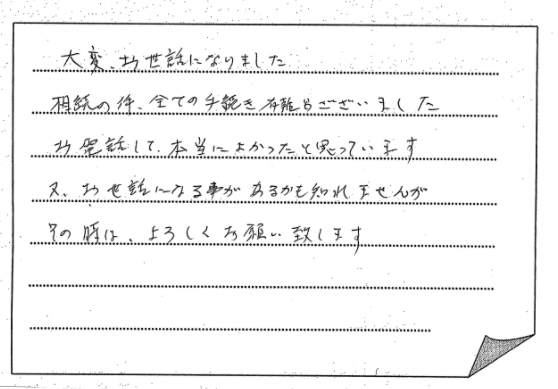 大変、お世話になりました
相続の件、全ての手続き有難うございました
お電話して、本当によかったと思っています
又、お世話になる事があるかも知れませんが
その時は、よろしくお願い致します